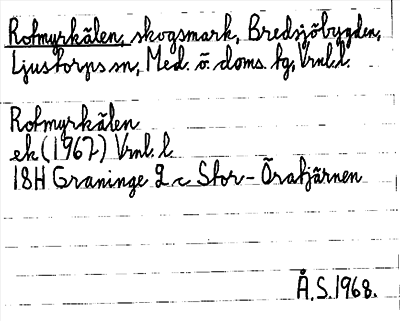 Rotmyrkälen, skogsmark, Bredsjöbygden,
Ljustorps sn, Med. ö. doms. tg, Vrnl. l.
Rotmyrkälen
ek (1967) Vrnl. l.
18H Graninge 2 c Stor-Öratjärnen
Å.S. 1968.